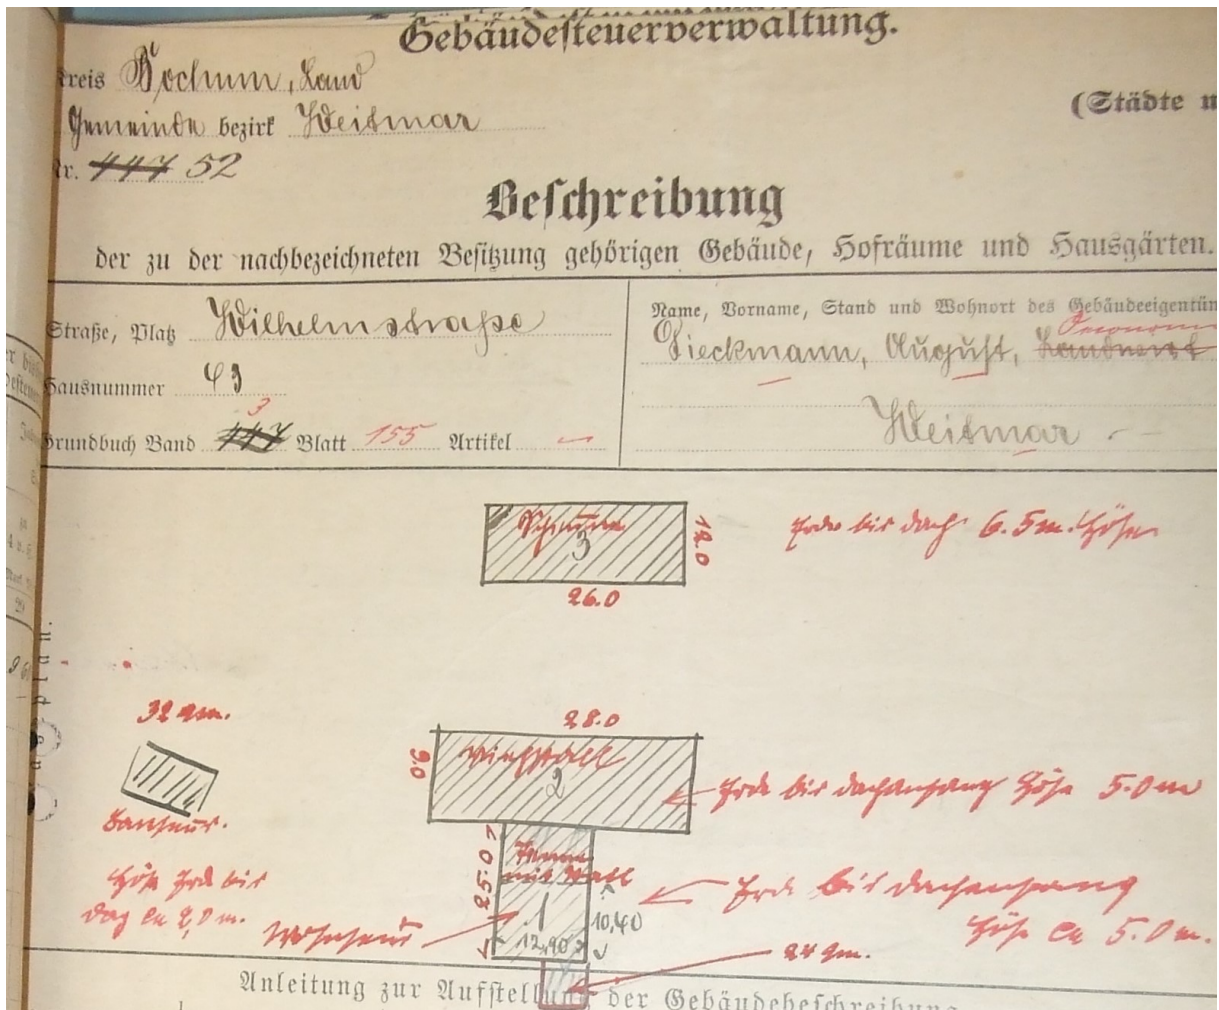 Gebäudesteuerverwaltung.
Kreis Bochum, Land
(Städte u
Gemeinde bezirk Weitmar
Nr. 447 52
Beschreibung
der zu der nachbezeichneten Besitzung gehörigen Gebäude, Hofräume und Hausgärten.
Straße, Platz Wilhelmstraße
Hausnummer 43
3
Grundbuch Band 447 Blatt 155 Artikel —
Name, Vorname, Stand und Wohnort des Gebäudeeigentüm
Oeconom
Dieckmann, August, Landwirt
Weitmar
Scheune
3
12.0
26.0
Erde bis dach 6.5 m. Höhe
32 qm.
Backhaus.
Höhe Erde bis
dach ca 2,0 m.
28.0
9.0
Viehstall
2
Erde bis dachanfang Höhe 5.0 m
25.0
Tenne
mit Stall
1
10,40
12,40
Wohnhaus
Erde bis dachanfang
Höhe ca 5.0 m.
24 qm.
Anleitung zur Aufstellung der Gebäudebeschreibung